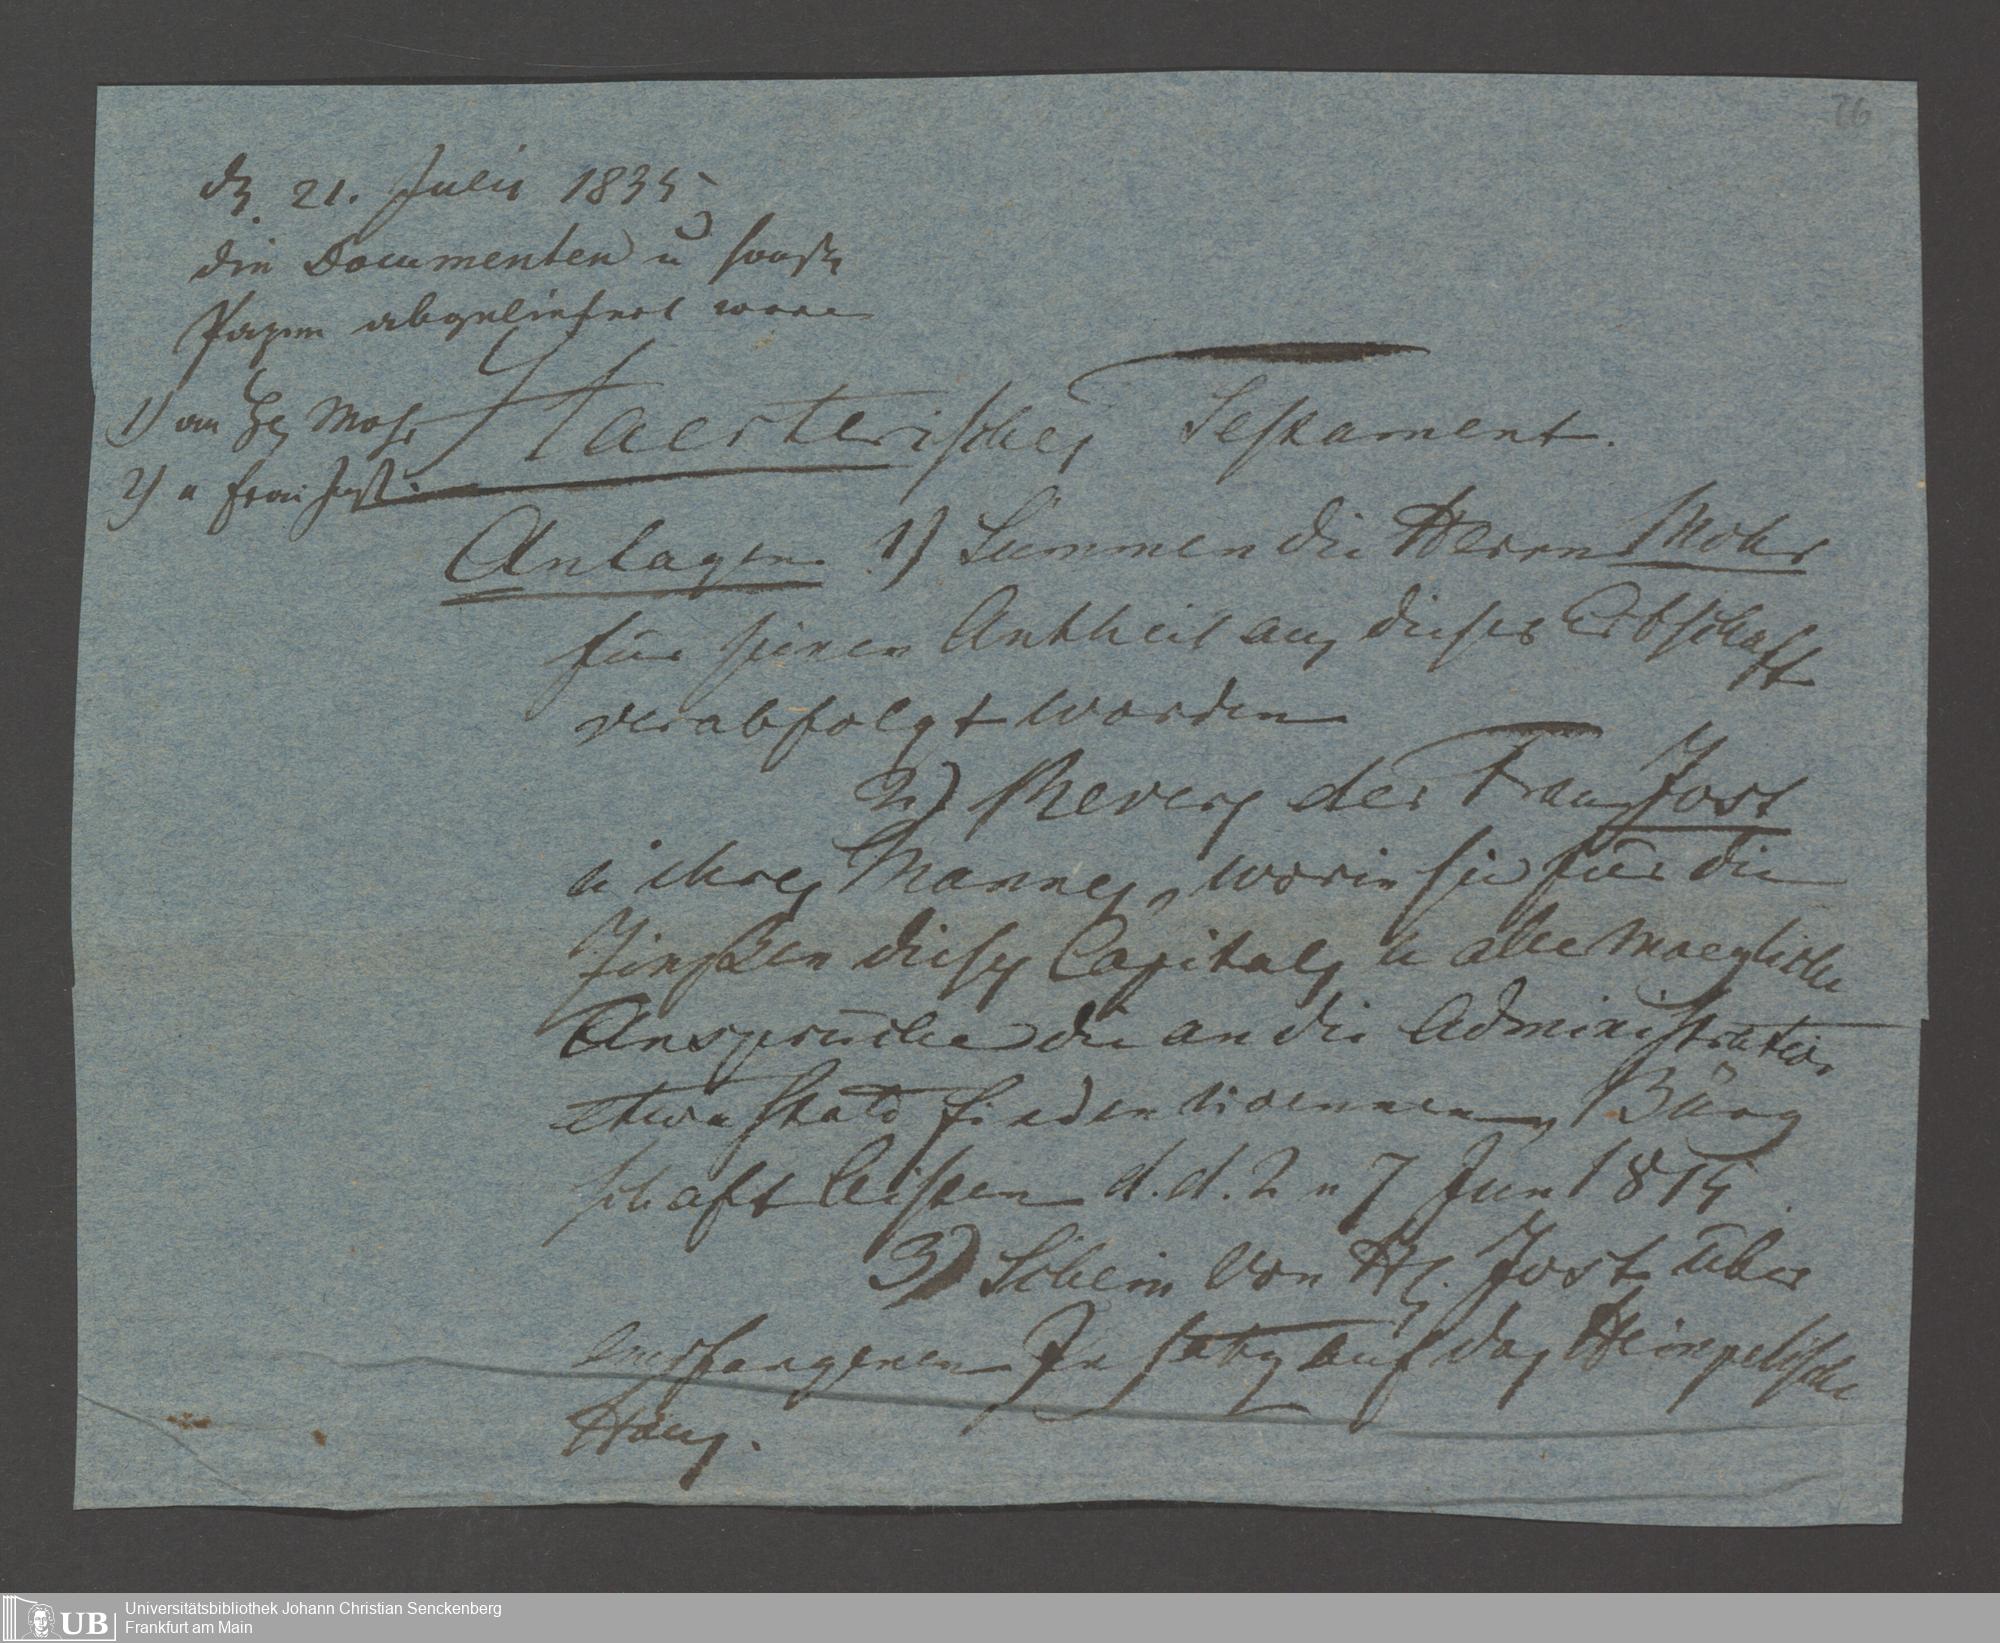 76
dn 21. Julii 1835
die Documenten u sonst
Papire abgeliefert waren
1) an H Mohr
2) " Frau Jost
Staertelisches Testament.
Anlagen 1) Summen die Herrn Mohr
für seinen Antheil aus dieser Erbschaft
verabfolgt worden
2) Revers der Frau Jost
u ihres Mannes, worin sie für die
Zinßen dieses Capitals u alle moegliche
Ansprüche die an die Administration
etwa statt finden koennen, Bürg
schaft leisten d. d. 2 u 7 Jun 1815
3) Schein von H. Jost über
empfangenen In satz auf das Heimpelische
Haus.
UB
Universitätsbibliothek Johann Christian Senckenberg
Frankfurt am Main